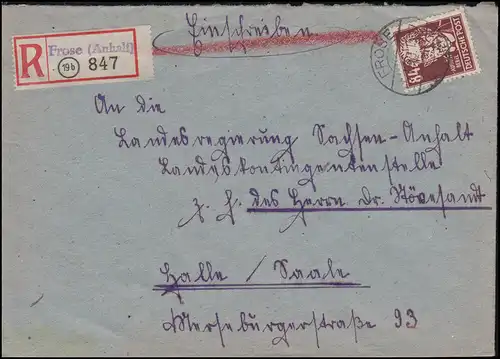 Einschreiben!
R Frose (Anhalt)
19b 847
FROSE
84
DEUTSCHE POST
An die
Landesregierung Sachsen-Anhalt
Landeskontingentenstelle
z. H. des Herrn Dr. Stövesandt
Halle / Saale
Merseburgerstraße 93